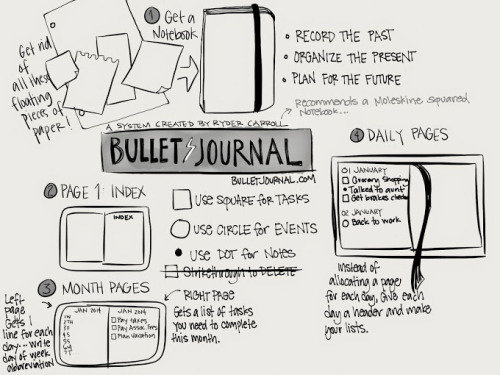 Get rid
of
all these
floating
pieces of
paper!
1 Get a
Notebook
• RECORD THE PAST
• ORGANIZE THE PRESENT
• PLAN FOR THE FUTURE
Recommends a Moleskine squared
Notebook...
A SYSTEM CREATED BY RYDER CARROLL
BULLET JOURNAL
BULLETJOURNAL.COM
2 PAGE 1: INDEX
INDEX
USE SQUARE FOR TASKS
USE CIRCLE for EVENTS
USE DOT for NOTES
Strikethrough to DELETE
3 MONTH PAGES
Left
page
Gets 1
line for each
day... write
day of week
abbreviation
JAN 2014
JAN 2014
Pay taxes
Pay Assoc. Fees
Plan Vacation
RIGHT PAGE
Gets a list of tasks
you need to complete
this month.
4 DAILY PAGES
01 JANUARY
Grocery Shopping
• Talked to aunt
Get brakes checked
02 JANUARY
Back to work
Instead of
allocating a page
for each day, Give each
day a header and make
your lists.